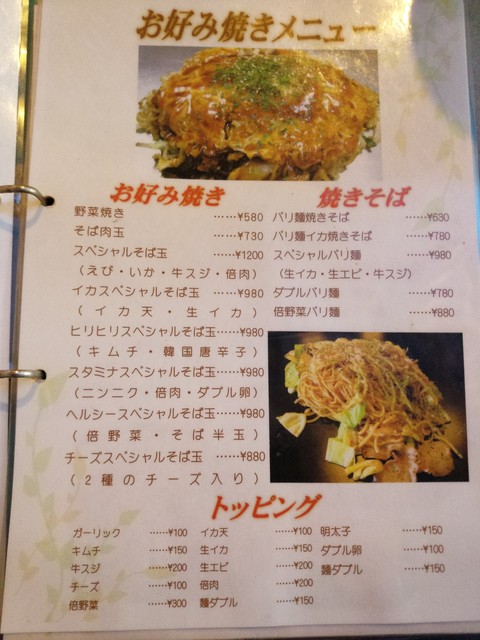 お好み焼きメニュー
お好み焼き
野菜焼き ……¥580
そば肉玉 ……¥730
スペシャルそば玉 ……¥1200
(えび・いか・牛スジ・倍肉)
イカスペシャルそば玉 ……¥980
(イカ天・生イカ)
ヒリヒリスペシャルそば玉……¥980
(キムチ・韓国唐辛子)
スタミナスペシャルそば玉……¥980
(ニンニク・倍肉・ダブル卵)
ヘルシースペシャルそば玉……¥980
(倍野菜・そば半玉)
チーズスペシャルそば玉 ……¥880
(2種のチーズ入り)
焼きそば
バリ麺焼きそば ……¥630
バリ麺イカ焼きそば ……¥780
スペシャルバリ麺 ……¥980
(生イカ・生エビ・牛スジ)
ダブルバリ麺 ……¥780
倍野菜バリ麺 ……¥880
トッピング
ガーリック ……¥100
キムチ ……¥150
牛スジ ……¥200
チーズ ……¥100
倍野菜 ……¥300
イカ天 ……¥100
生イカ ……¥150
生エビ ……¥200
倍肉 ……¥200
麺ダブル ……¥150
明太子 ……¥150
ダブル卵 ……¥100
麺ダブル ……¥150